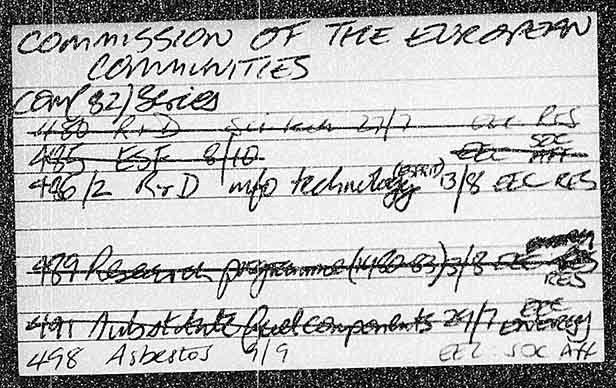 COMMISSION OF THE EUROPEAN
COMMUNITIES
COM(82) Series
480 R+D Sci+tech 27/7 EEC RES
485 ESF 8/10 EEC SOC AFF
486/2 R+D info technology (ESPRIT) 13/8 EEC RES
489 Research programme (1480-83) 3/8 EEC ENERGY RES
491 Substitute fuel components 29/7 EEC ENERGY
498 Asbestos 9/9 EEC SOC AFF